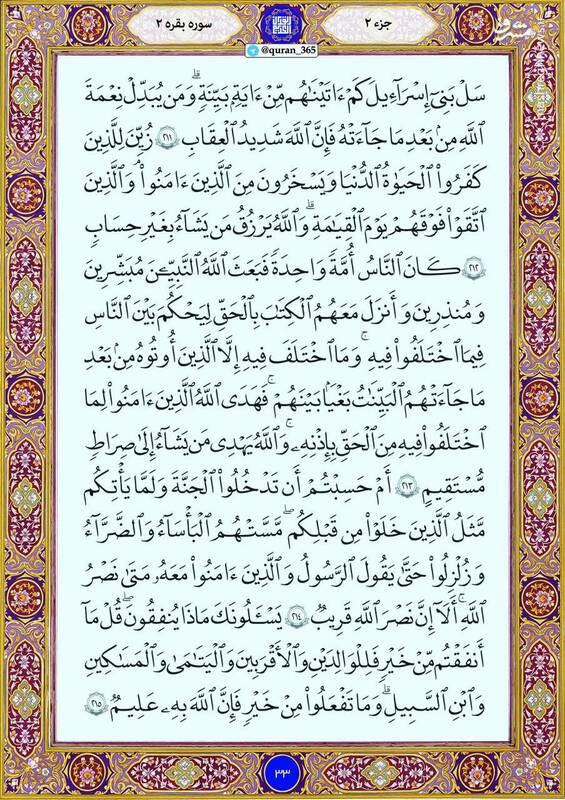 سوره بقره ۲
جزء ۲
@quran_365
سَلْ بَنِىٓ إِسْرَٰٓءِيلَ كَمْ ءَاتَيْنَٰهُم مِّنْ ءَايَةٍۭ بَيِّنَةٍۗ وَمَن يُبَدِّلْ نِعْمَةَ
ٱللَّهِ مِنۢ بَعْدِ مَا جَآءَتْهُ فَإِنَّ ٱللَّهَ شَدِيدُ ٱلْعِقَابِ ٢١١ زُيِّنَ لِلَّذِينَ
كَفَرُوا۟ ٱلْحَيَوٰةُ ٱلدُّنْيَا وَيَسْخَرُونَ مِنَ ٱلَّذِينَ ءَامَنُوا۟ۘ وَٱلَّذِينَ
ٱتَّقَوْا۟ فَوْقَهُمْ يَوْمَ ٱلْقِيَٰمَةِۗ وَٱللَّهُ يَرْزُقُ مَن يَشَآءُ بِغَيْرِ حِسَابٍ
٢١٢ كَانَ ٱلنَّاسُ أُمَّةً وَٰحِدَةً فَبَعَثَ ٱللَّهُ ٱلنَّبِيِّۦنَ مُبَشِّرِينَ
وَمُنذِرِينَ وَأَنزَلَ مَعَهُمُ ٱلْكِتَٰبَ بِٱلْحَقِّ لِيَحْكُمَ بَيْنَ ٱلنَّاسِ
فِيمَا ٱخْتَلَفُوا۟ فِيهِۚ وَمَا ٱخْتَلَفَ فِيهِ إِلَّا ٱلَّذِينَ أُوتُوهُ مِنۢ بَعْدِ
مَا جَآءَتْهُمُ ٱلْبَيِّنَٰتُ بَغْيًۢا بَيْنَهُمْۖ فَهَدَى ٱللَّهُ ٱلَّذِينَ ءَامَنُوا۟ لِمَا
ٱخْتَلَفُوا۟ فِيهِ مِنَ ٱلْحَقِّ بِإِذْنِهِۦۗ وَٱللَّهُ يَهْدِى مَن يَشَآءُ إِلَىٰ صِرَٰطٍ
مُّسْتَقِيمٍ ٢١٣ أَمْ حَسِبْتُمْ أَن تَدْخُلُوا۟ ٱلْجَنَّةَ وَلَمَّا يَأْتِكُم
مَّثَلُ ٱلَّذِينَ خَلَوْا۟ مِن قَبْلِكُمۖ مَّسَّتْهُمُ ٱلْبَأْسَآءُ وَٱلضَّرَّآءُ
وَزُلْزِلُوا۟ حَتَّىٰ يَقُولَ ٱلرَّسُولُ وَٱلَّذِينَ ءَامَنُوا۟ مَعَهُۥ مَتَىٰ نَصْرُ
ٱللَّهِۗ أَلَآ إِنَّ نَصْرَ ٱللَّهِ قَرِيبٌ ٢١٤ يَسْـَٔلُونَكَ مَاذَا يُنفِقُونَۖ قُلْ مَآ
أَنفَقْتُم مِّنْ خَيْرٍ فَلِلْوَٰلِدَيْنِ وَٱلْأَقْرَبِينَ وَٱلْيَتَٰمَىٰ وَٱلْمَسَٰكِينِ
وَٱبْنِ ٱلسَّبِيلِۗ وَمَا تَفْعَلُوا۟ مِنْ خَيْرٍ فَإِنَّ ٱللَّهَ بِهِۦ عَلِيمٌ ٢١٥
۳۳